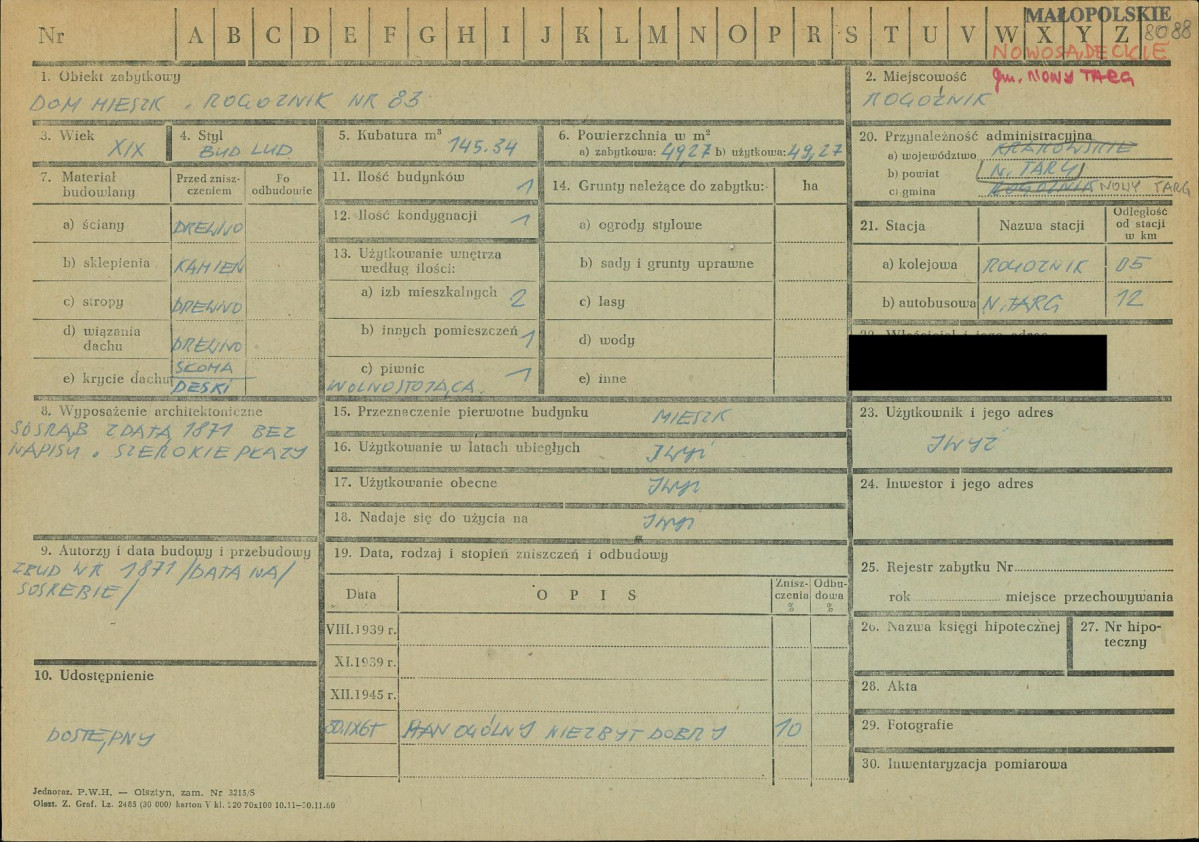 Nr A B C D E F G H I J K L M N O P R S T U V W X Y Z
MAŁOPOLSKIE
8088
NOWOSĄDECKIE
gm. NOWY TARG
1. Obiekt zabytkowy
DOM MIESZK. ROGOŹNIK NR 83
2. Miejscowość
ROGOŹNIK
3. Wiek
XIX
4. Styl
BUD LUD
5. Kubatura m³
145.34
6. Powierzchnia w m²
a) zabytkowa: 4927 b) użytkowa: 49,27
20. Przynależność administracyjna
a) województwo KRAKOWSKIE
b) powiat N. TARG
c) gmina NOWY TARG
7. Materiał budowlany
Przed zniszczeniem
Po odbudowie
a) ściany DREWNO
b) sklepienia KAMIEŃ
c) stropy DREWNO
d) wiązania dachu DREWNO
e) krycie dachu SŁOMA
DESKI
11. Ilość budynków 1
12. Ilość kondygnacji 1
13. Użytkowanie wnętrza według ilości:
a) izb mieszkalnych 2
b) innych pomieszczeń 1
c) piwnic 1
WOLNOSTOJĄCA.
14. Grunty należące do zabytku:
ha
a) ogrody stylowe
b) sady i grunty uprawne
c) lasy
d) wody
e) inne
21. Stacja
Nazwa stacji
Odległość od stacji w km
a) kolejowa ROGOŹNIK 05
b) autobusowa N. TARG 12
8. Wyposażenie architektoniczne
SOSRĄB Z DATĄ 1871 BEZ
NAPISU. SZEROKIE PŁAZY
15. Przeznaczenie pierwotne budynku MIESZK
16. Użytkowanie w latach ubiegłych JWYŻ
17. Użytkowanie obecne JWYŻ
18. Nadaje się do użycia na JWYŻ
23. Użytkownik i jego adres
JWYŻ
24. Inwestor i jego adres
9. Autorzy i data budowy i przebudowy
ZBUD W R 1871 /DATA NA/
SOSRĘBIE/
10. Udostępnienie
DOSTĘPNY
19. Data, rodzaj i stopień zniszczeń i odbudowy
Data
OPIS
Zniszczenia %
Odbudowa %
VIII.1939 r.
XI.1939 r.
XII.1945 r.
STAN OGÓLNY NIEZBYT DOBRY 10
25. Rejestr zabytku Nr
rok miejsce przechowywania
26. Nazwa księgi hipotecznej
27. Nr hipoteczny
28. Akta
29. Fotografie
30. Inwentaryzacja pomiarowa
Jednoraz. P.W.H. — Olsztyn, zam. Nr 3215/S
Olszt. Z. Graf. Lz. 2485 (30 000) karton V kl. 220 70x100 10.11—30.11.60